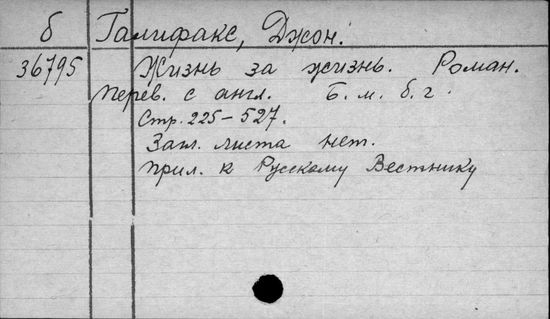 б Галифакс, Джон.
36795 Жизнь за жизнь. Роман.
Перев. с англ. Б. м. б. г.
Стр. 225–527.
Загл. листа нет.
Прил. к Русскому Вестнику